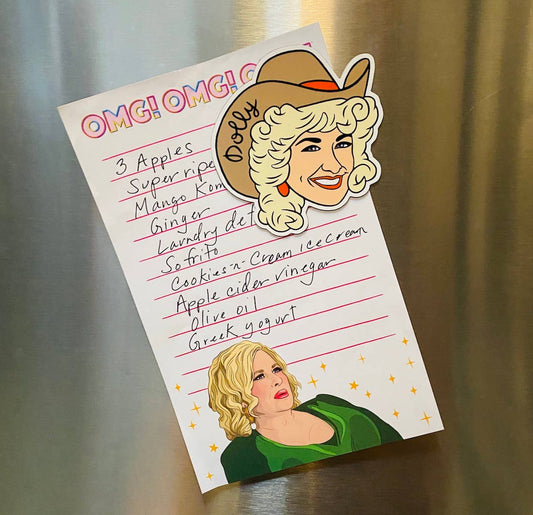 OMG! OMG!
Dolly
3 Apples
Super ripe
Mango Kom
Ginger
Laundry det
Sofrito
Cookies-n-Cream ice cream
Apple cider vinegar
Olive oil
Greek yogurt